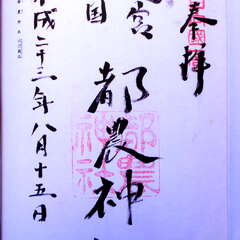 奉拝
宮
国
都農神
都農神社
平成二十三年八月十五日